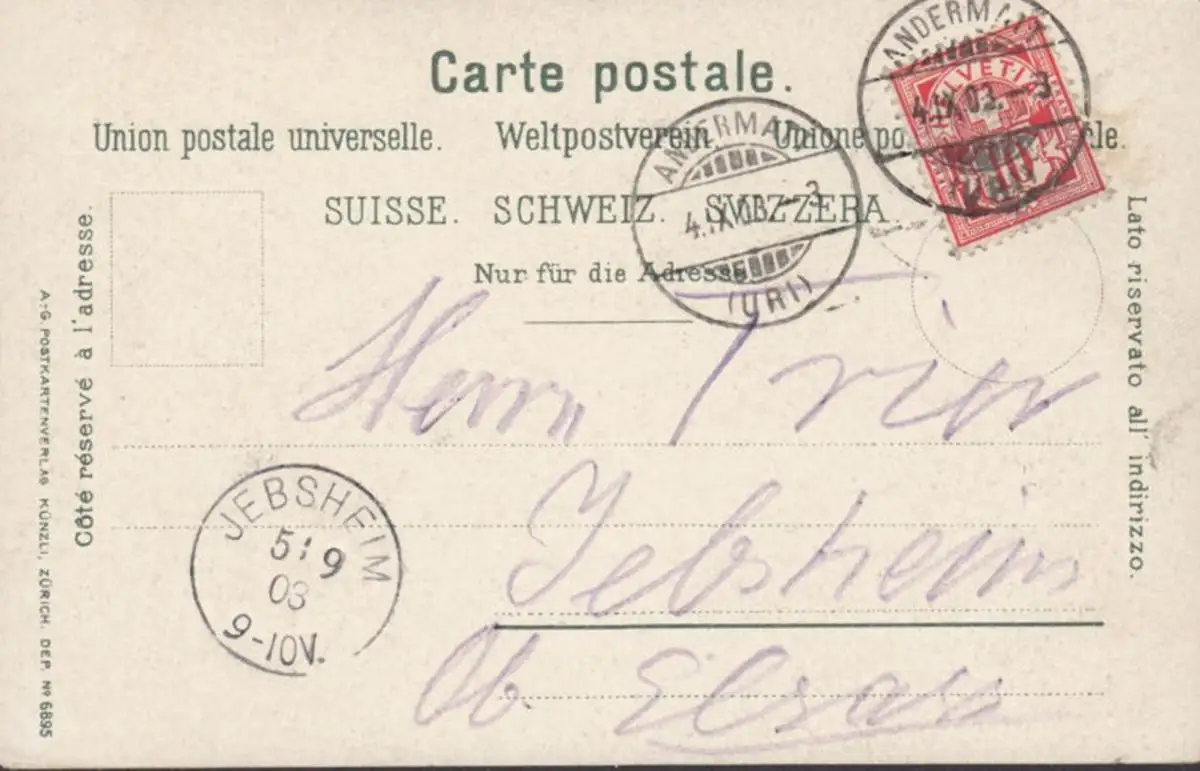 Carte postale.
Union postale universelle. Weltpostverein. Unione po le.
SUISSE. SCHWEIZ. SVIZZERA.
Nur für die Adresse
Côté réservé à l'adresse.
A.-G. POSTKARTENVERLAG KÜNZLI, ZÜRICH. DEP. Nº 6895
Lato riservato all' indirizzo.
ANDERMATT
4.IX.03.–3
(URI)
HELVETIA
10
ANDERMATT
4.IX.03.–3
Herrn Trier
Jebsheim
Ob Elsass
JEBSHEIM
5:9
03
9-10V.